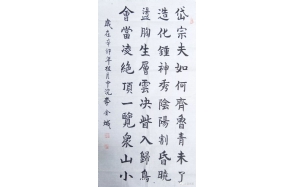 岱宗夫如何齊魯青未了
造化鍾神秀陰陽割昏曉
盪胸生層雲決眥入歸鳥
會當凌絕頂一覽衆山小
歲在辛卯年